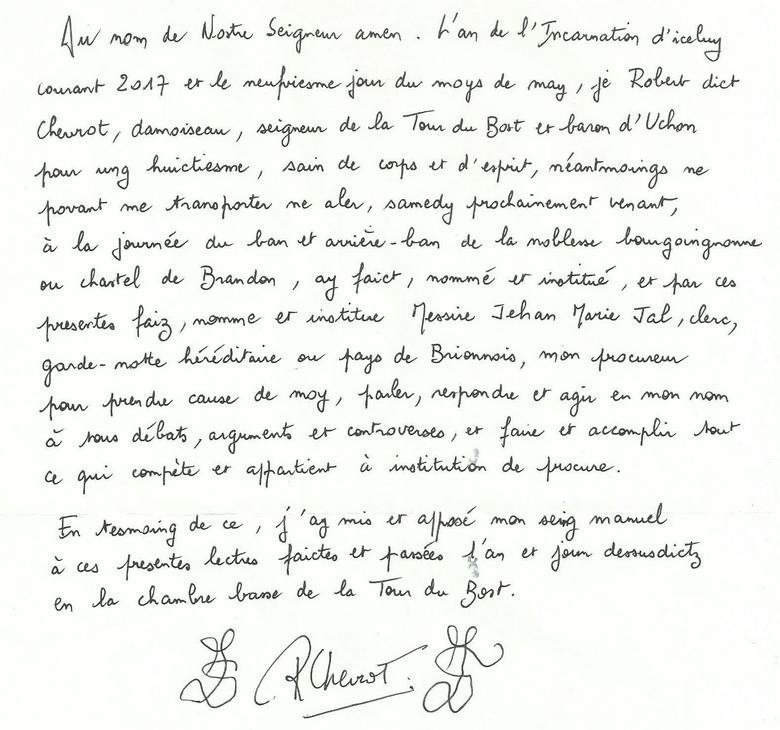 Au nom de Nostre Seigneur amen. L'an de l'Incarnation d'iceluy
courant 2017 et le neufviesme jour du moys de may, je Robert dict
Chevrot, damoiseau, seigneur de la Tour du Bost et baron d'Uchon
pour ung huictiesme, sain de corps et d'esprit, néantmoings ne
povant me transporter ne aler, samedy prochainement venant,
à la journée du ban et arrière-ban de la noblesse bourgoingnonne
ou chastel de Brandon, ay faict, nommé et institué, et par ces
presentes faiz, nomme et institue Messire Jehan Marie Jal, clerc,
garde-notte héréditaire ou pays de Brionnois, mon procureur
pour prendre cause de moy, parler, respondre et agir en mon nom
à tous débats, arguments et controverses, et faire et accomplir tout
ce qui compète et appartient à institution de procure.
En tesmoing de ce, j'ay mis et apposé mon seing manuel
à ces presentes lectres faictes et passées l'an et jour dessusdictz
en la chambre basse de la Tour du Bost.
RChevrot